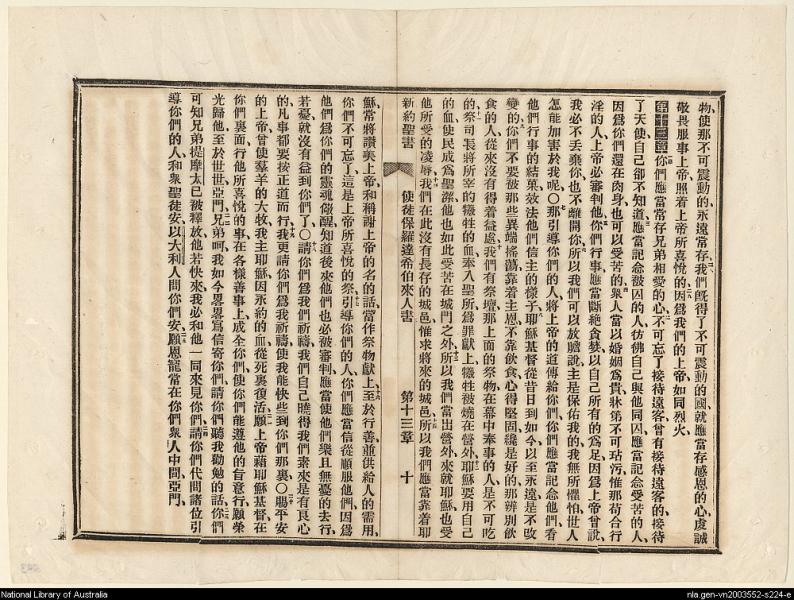 物、使那不可震動的、永遠常存、我們旣得了不可震動的國、就應當存感恩的心、虔誠
敬畏服事上帝、照着上帝所喜悅的、因爲我們的上帝、如同烈火
第十三章 你們應當常存兄弟相愛的心、不可忘了接待遠客、曾有接待遠客的、接待
了天使、自己卻不知道、應當記念被囚的人、彷彿自己與他同囚、應當記念受苦的人、
因爲你們還在肉身、也可以受苦的、衆人當以婚姻爲貴、牀第不可玷污、惟那苟合行
淫的人、上帝必審判他、你們行事、應當斷絶貪婪、以自己所有的爲足、因爲上帝曾說、
我必不丟棄你、也不離開你、所以我們可以放膽說、主是保佑我的、我無所懼怕、世人
怎能加害於我呢〇那引導你們的人、將上帝的道傳給你們、你們應當記念他們、看
他們行事的結果、效法他們信主的樣子、耶穌基督從昔日到如今、以至永遠、是不改
變的、你們不要被那些異端搖蕩、靠着主恩、不靠飲食、心得堅固、纔是好的、那辨別飲
食的人、從來沒有得着益處、我們有祭壇、那上面的祭物、在幕中奉事的人、是不可吃
的、祭司長將所宰的犧牲的血、奉入聖所、爲罪獻上、犧牲被燒在營外、耶穌要用自己
的血、使民成爲聖潔、他也如此受苦在城門之外、所以我們當出營外來就耶穌、也受
他所受的凌辱、我們在此沒有長存的城邑、惟求將來的城邑、所以我們應當靠着耶
新約聖書 使徒保羅達希伯來人書 第十三章 十
穌、常將讚美上帝、和稱謝上帝的名的話、當作祭物獻上、至於行善、並供給人的需用、
你們不可忘了、這是上帝所喜悅的祭、引導你們的人、你們應當信從順服他們、因爲
他們爲你們的靈魂儆醒、知道後來他們也必被審判、應當使他們樂且無憂的去行、
若憂、就沒有益到你們了〇請你們爲我們祈禱、我們自己曉得我們素來是有良心
的、凡事都要按正道而行、我更請你們爲我祈禱、使我能快些到你們那裏〇賜平安
的上帝、曾使羣羊的大牧、我主耶穌、因永約的血、從死裏復活、願上帝藉耶穌基督、在
你們裏面、行他所喜悅的事、在各樣善事上、成全你們、使你們能遵他的旨意行、願榮
光歸他、至於世世、亞們、兄弟呵、我如今畧畧寫信寄你們、請你們聽我勸勉的話、你們
可知兄弟提摩太、已被釋放、他若快來、我必和他一同來見你們、請你們代問諸位引
導你們的人、和衆聖徒安、以大利人問你們安、願恩寵常在你們衆人中間、亞門、
National Library of Australia
nla.gen-vn2003552-s224-e